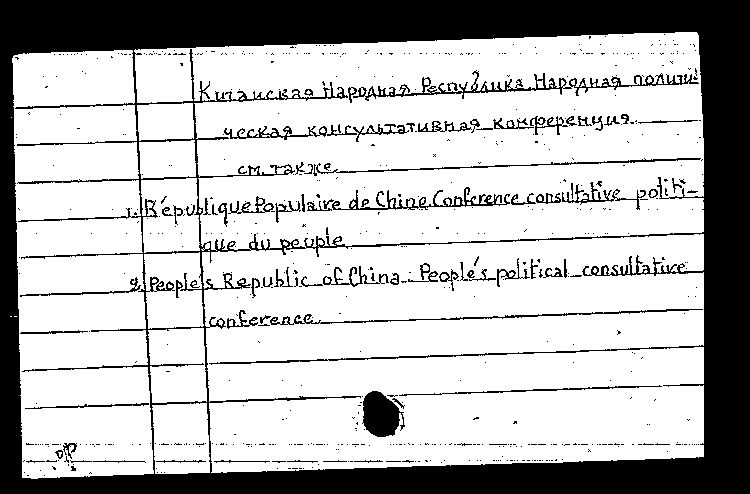 Китайская Народная Республика. Народная полити-
ческая консультативная конференция
см. также
1. République Populaire de Chine. Conference consultative politi-
que du peuple
2. People's Republic of China. People's political consultative
conference